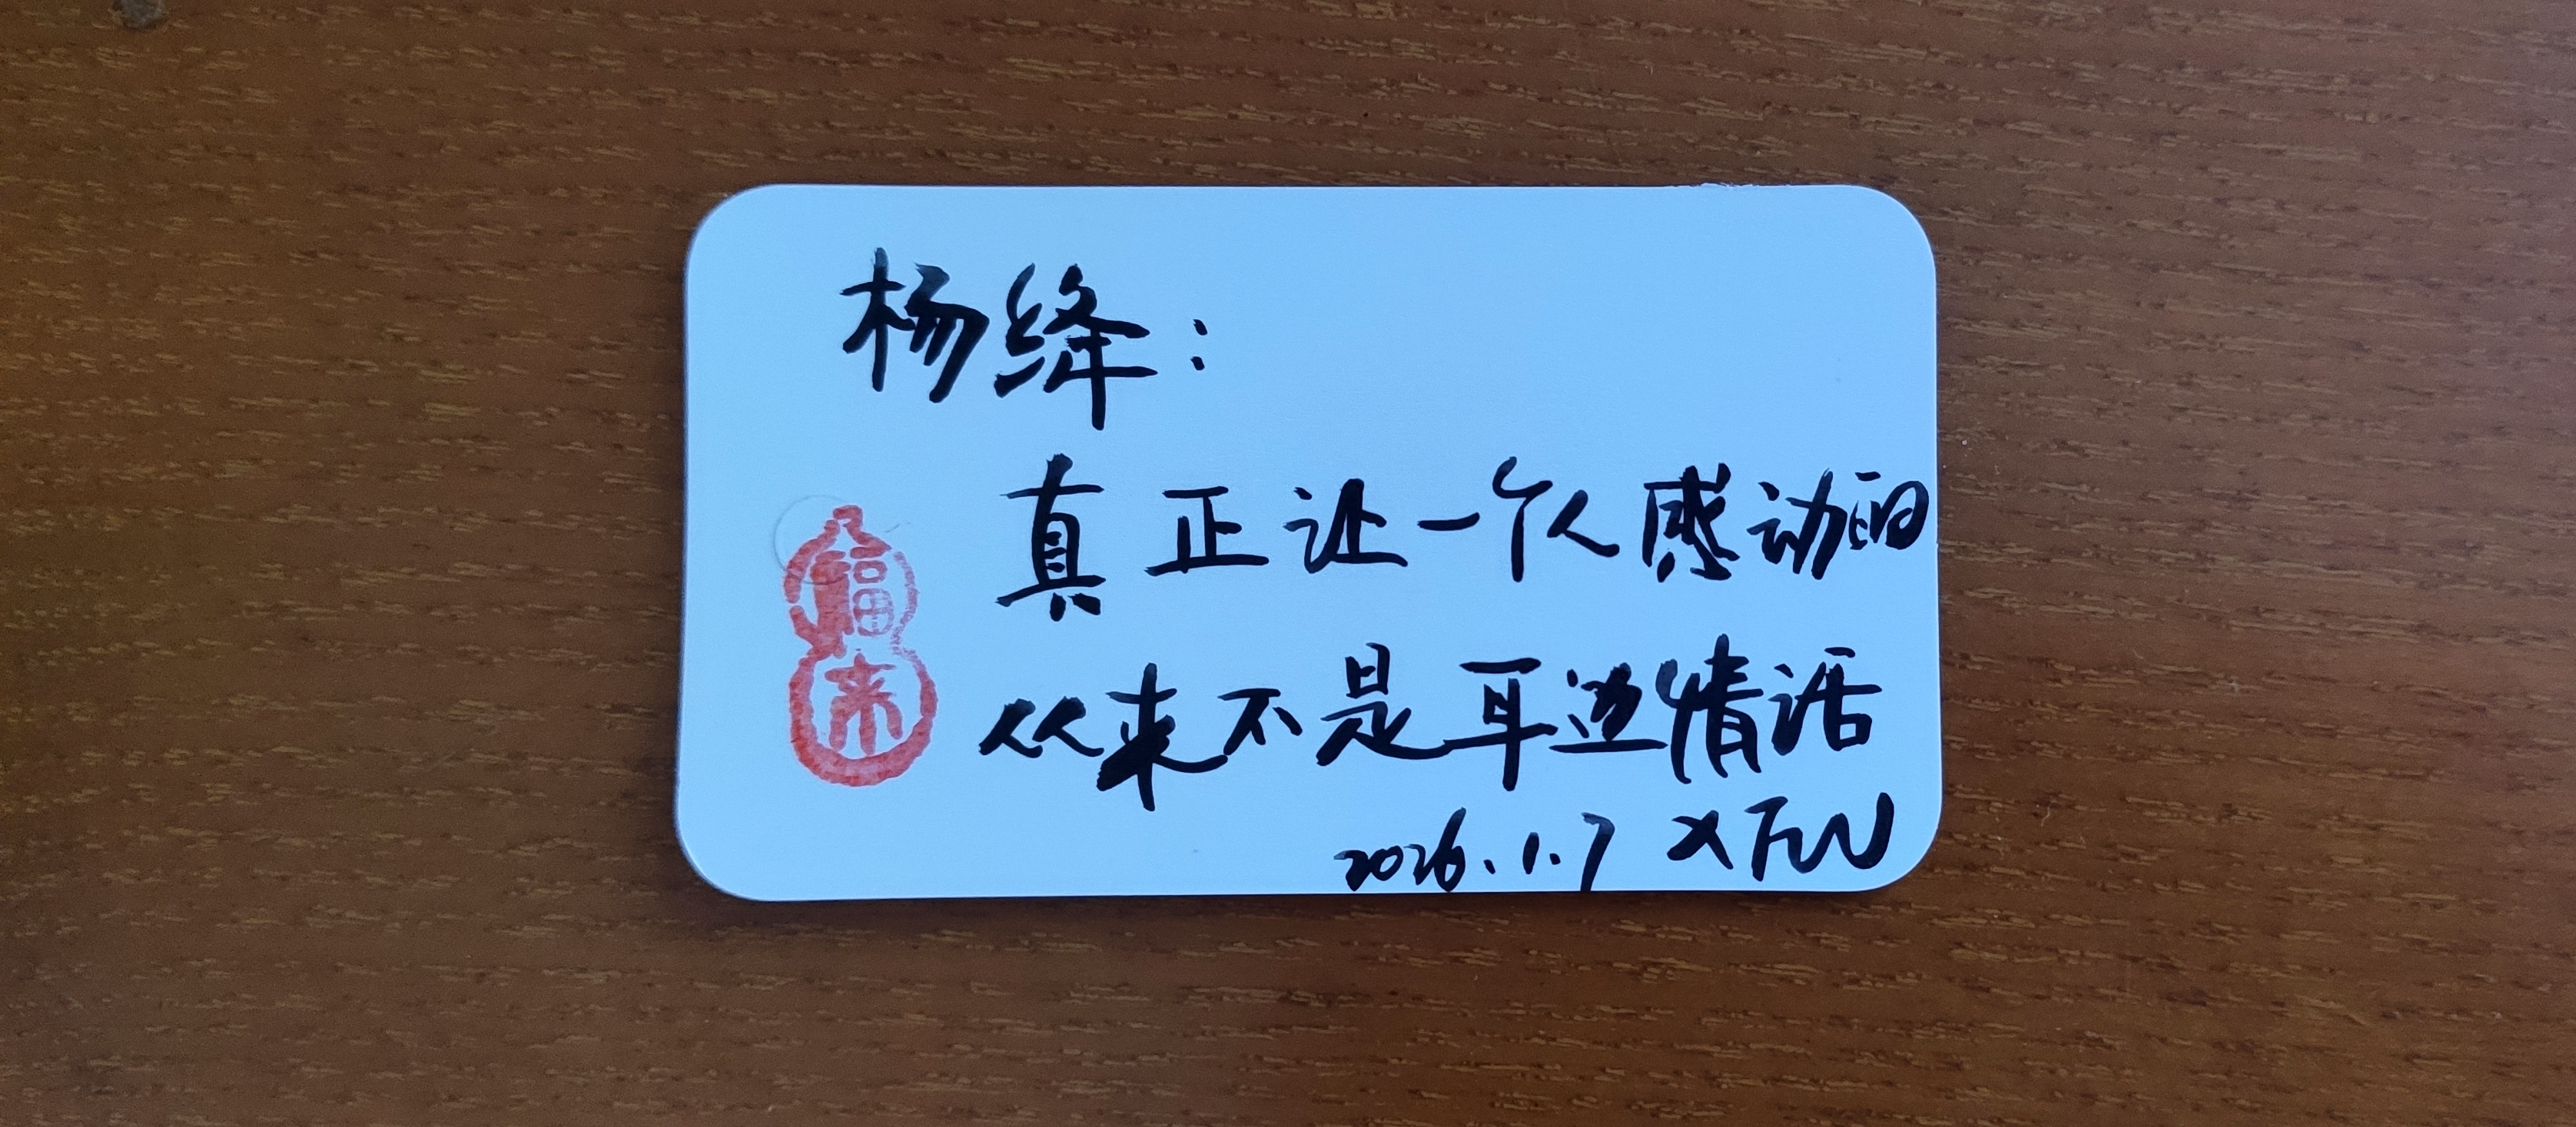 杨绛：
真正让一个人感动的
从来不是耳边情话
2026.1.7 XTW
福
来